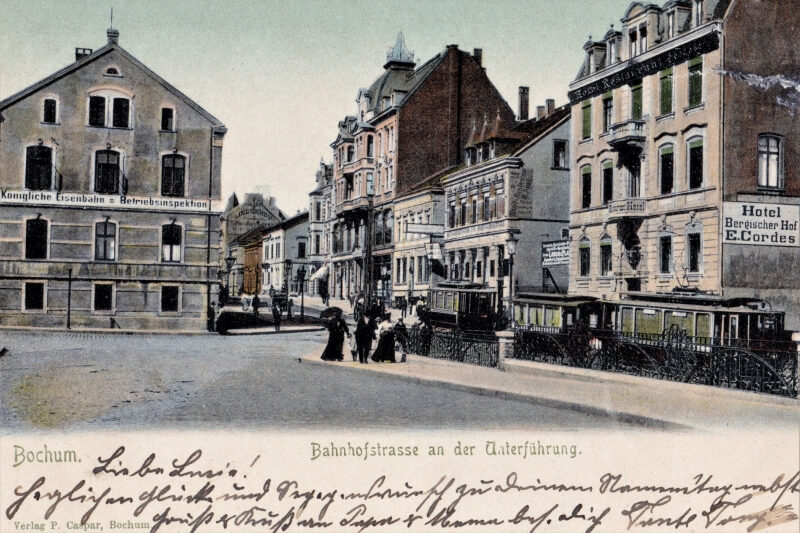 Hotel Restaurant
Königliche Eisenbahn = Betriebsinspektion
Hotel
Hotel
Bergischer Hof
E. Cordes
Bochum.
Bahnhofstrasse an der Unterführung.
Liebe Lucie!
Herzlichen Glück und Segenswunsch zu deinem Namenstag nebst
Gruß & Kuß an Papa & Mama bes. dich Tante Tony
Verlag P. Caspar, Bochum